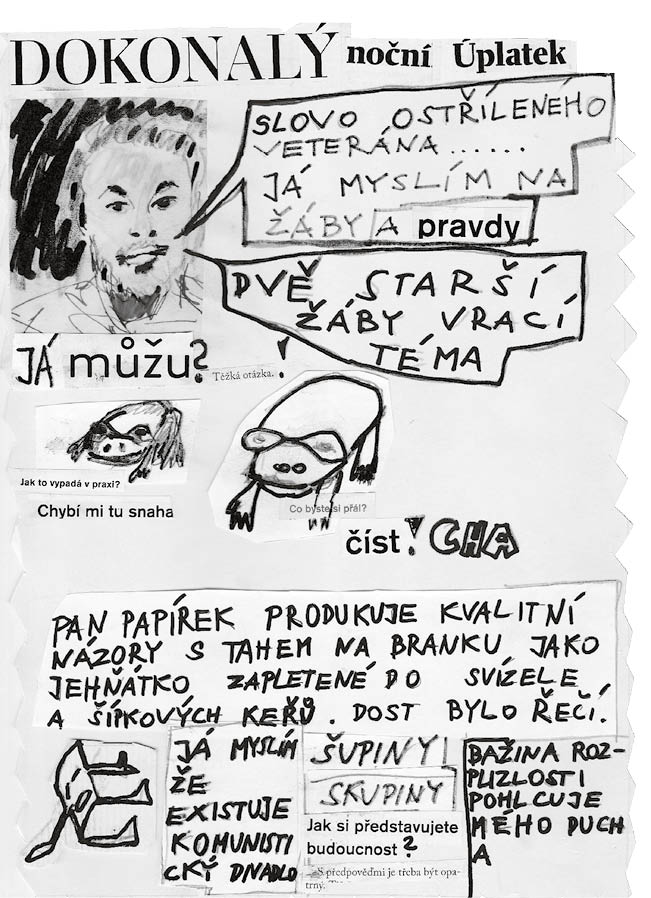 DOKONALÝ noční Úplatek
SLOVO OSTŘÍLENÉHO
VETERÁNA......
JÁ MYSLÍM NA
ŽÁBY A pravdy
DVĚ STARŠÍ
ŽÁBY VRACÍ
TÉMA
JÁ můžu?
Těžká otázka. !
Jak to vypadá v praxi?
Chybí mi tu snaha
Co byste si přál?
číst! CHA
PAN PAPÍREK PRODUKUJE KVALITNÍ
NÁZORY S TAHEM NA BRANKU JAKO
JEHŇÁTKO ZAPLETENÉ DO SVÍZELE
A ŠÍPKOVÝCH KEŘŮ. DOST BYLO ŘEČÍ.
JÁ MYSLÍM
ŽE
EXISTUJE
KOMUNISTI
CKÝ DIVADLO
ŠUPINY
SKUPINY
Jak si představujete
budoucnost?
– S předpověďmi je třeba být opa-
trný.
BAŽINA ROZ-
PLIZLOSTI
POHLCUJE
MÉHO DUCH
A